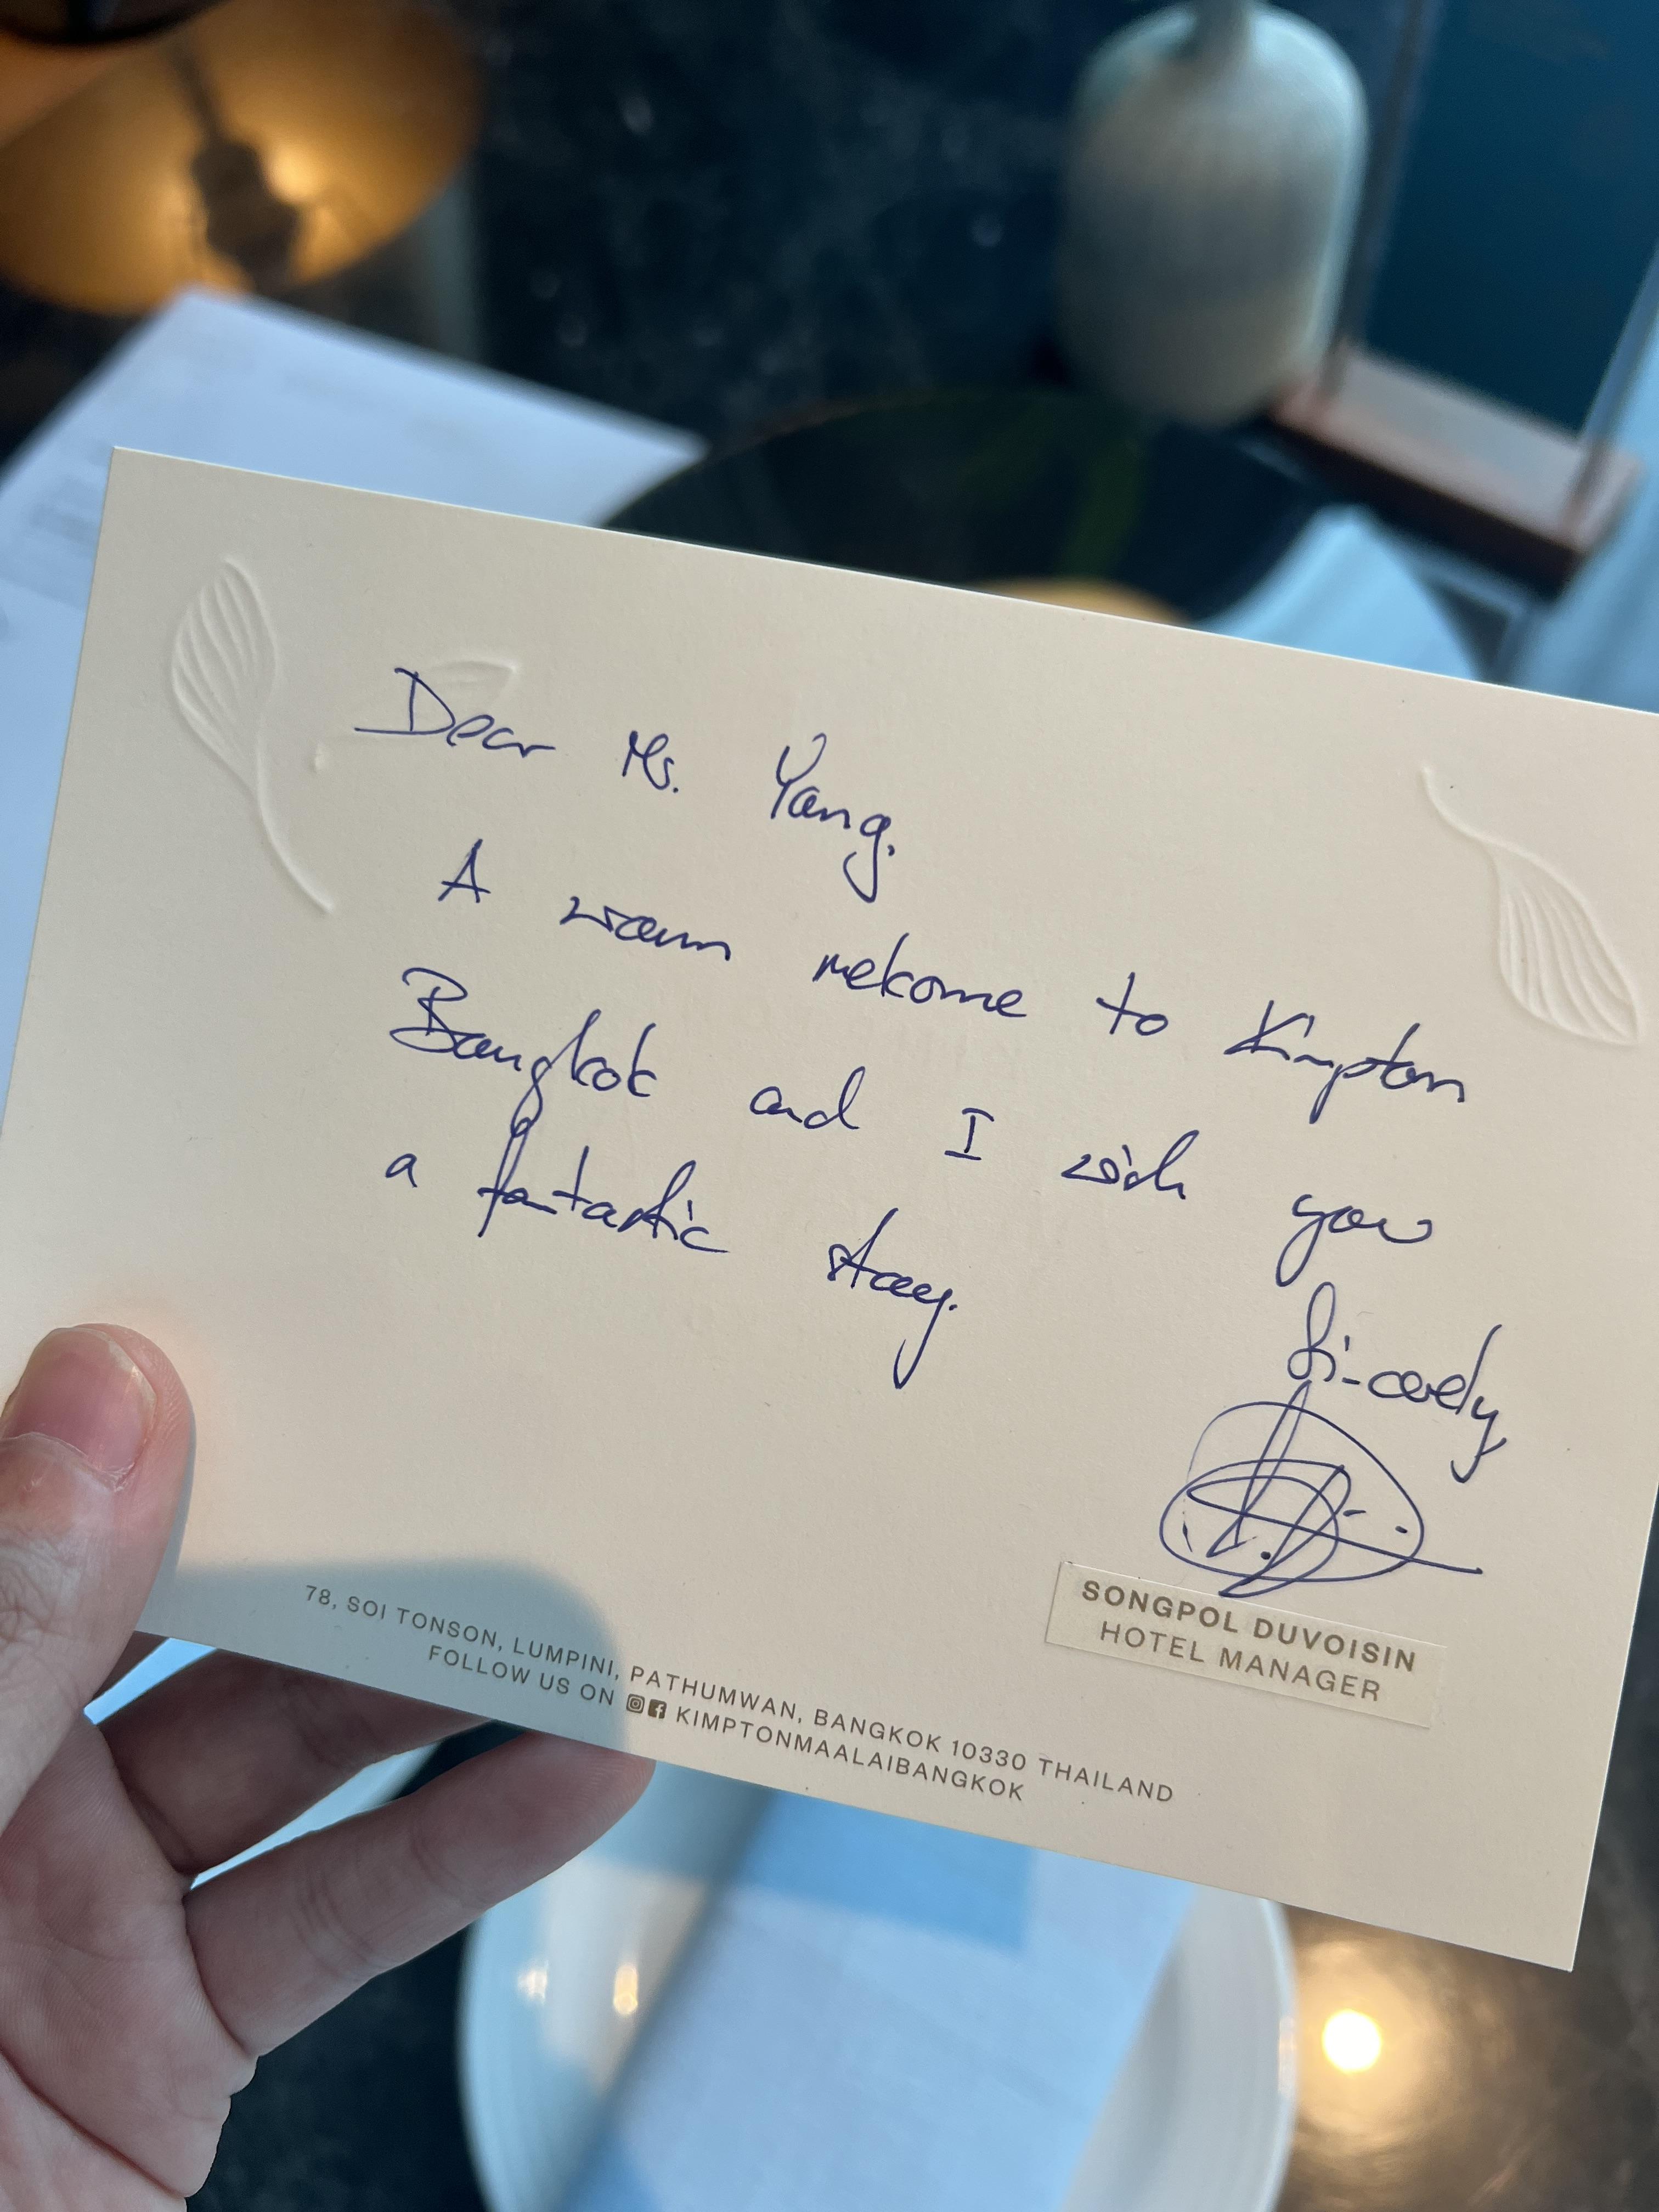 Dear Ms. Yang.
A warm welcome to Kimpton
Bangkok and I wish you
a fantastic stay.
Sincerely
SONGPOL DUVOISIN
HOTEL MANAGER
78, SOI TONSON, LUMPINI, PATHUMWAN, BANGKOK 10330 THAILAND
FOLLOW US ON KIMPTONMAALAIBANGKOK